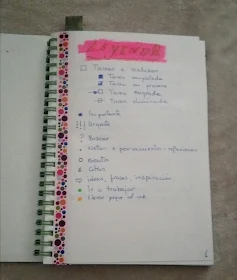 LEYENDA
Tareas a realizar
Tarea completada
Tarea en proceso
Tarea migrada
Tarea eliminada
Importante
!!! Urgente
Buscar
Notas o pensamientos - reflexiones
Evento
Citas
ideas, frases, inspiración
Ir a trabajar
Hacer pagos al